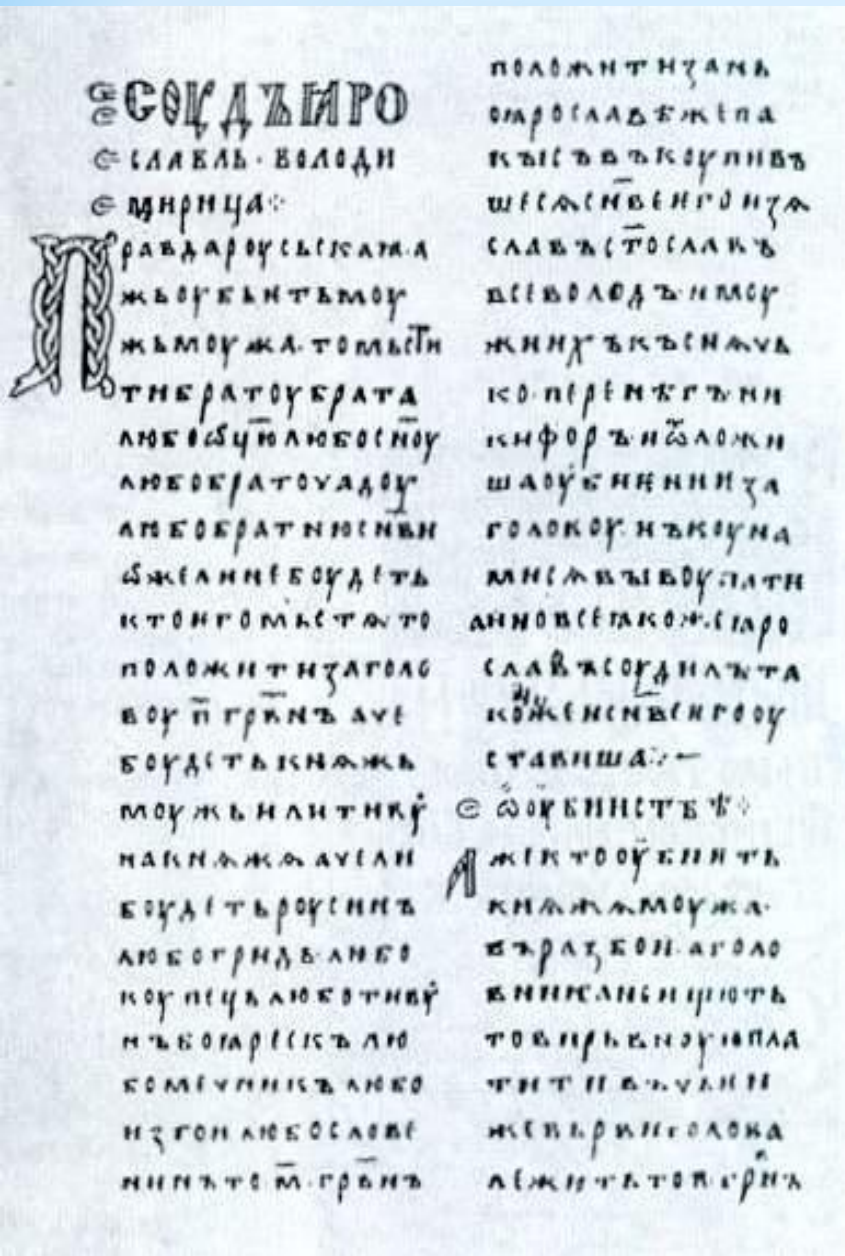 СОУДЪ ꙖРО
СЛАВЛЬ · ВОЛОДИ
МИРИЦА⁘
ПРАВДА РОУСЬСКАꙖ · А
ЖЬ ОУБЬИТЬ МОУ
ЖЬ МОУЖА · ТО МЬСТИ
ТИ БРАТОУ БРАТА
ЛЮБО ѾЦЮ ЛЮБО СН҃ОУ
ЛЮБО БРАТОУЧАДОУ
ЛЮБО БРАТНЮ СН҃ВИ
ѾЖЕ ЛИ НЕ БОУДЕТЬ
КТО ИГО МЬСТѦ ТО
ПОЛОЖИТИ ЗА ГОЛО
ВОУ П҃ ГРВ҃НЪ АЧЕ
БОУДЕТЬ КНѦЖЬ
МОУЖЬ ИЛИ ТИВУ
НА КНѦЖѦ АЧЕ ЛИ
БОУДЕТЬ РОУСИНЪ
ЛЮБО ГРИДЬ ЛИБО
КОУПЕЦЬ ЛЮБО ТИВУ
НЪ БОꙖРЕСКЪ ЛЮ
БО МЕЧНИКЪ ЛЮБО
ИЗГОИ ЛЮБО СЛОВЕ
НИНЪ ТО М҃ · ГРВ҃НЪ
ПОЛОЖИТИ ЗА НЬ
ПО ꙖРОСЛАВѢ ЖЕ ПА
КЫ СЪВЪКОУПИВЪ
ШЕСѦ СН҃ВЕ ИГО ИЗѦ
СЛАВЪ СТ҃ОСЛАВЪ
ВСЕВОЛОДЪ · И МОУ
ЖИ ИХЪ КЪСНѦЧЬ
КО · ПЕРЕНѢГЪ · НИ
КИФОРЪ · И ѾЛОЖИ
ША ОУБИѤНИИ ЗА
ГОЛОВОУ · НЪ КОУНА
МИ СѦ ВЫВОУПАТИ
А ИНО ВСЕ ꙖКОЖЕ ꙖРО
СЛАВЪ СОУДИЛЪ ТА
КОЖЕ И СН҃ВЕ ИГО ОУ
СТАВИША⁘
Ѡ ОУБИИСТВѢ⁘
АЖЕ КТО ОУБИИТЬ
КНѦЖѦ МОУЖА ·
ВЪ РАЗБОИ · А ГОЛО
ВНИКА НЕ ИЩЮТЬ
ТО ВИРЬВНОУЮ ПЛА
ТИТИ ВЪ ЧЬИИ
ЖЕ ВЬРВИ ГОЛОВА
ЛЕЖИТЬ ТО П҃ · ГРВ҃НЪ